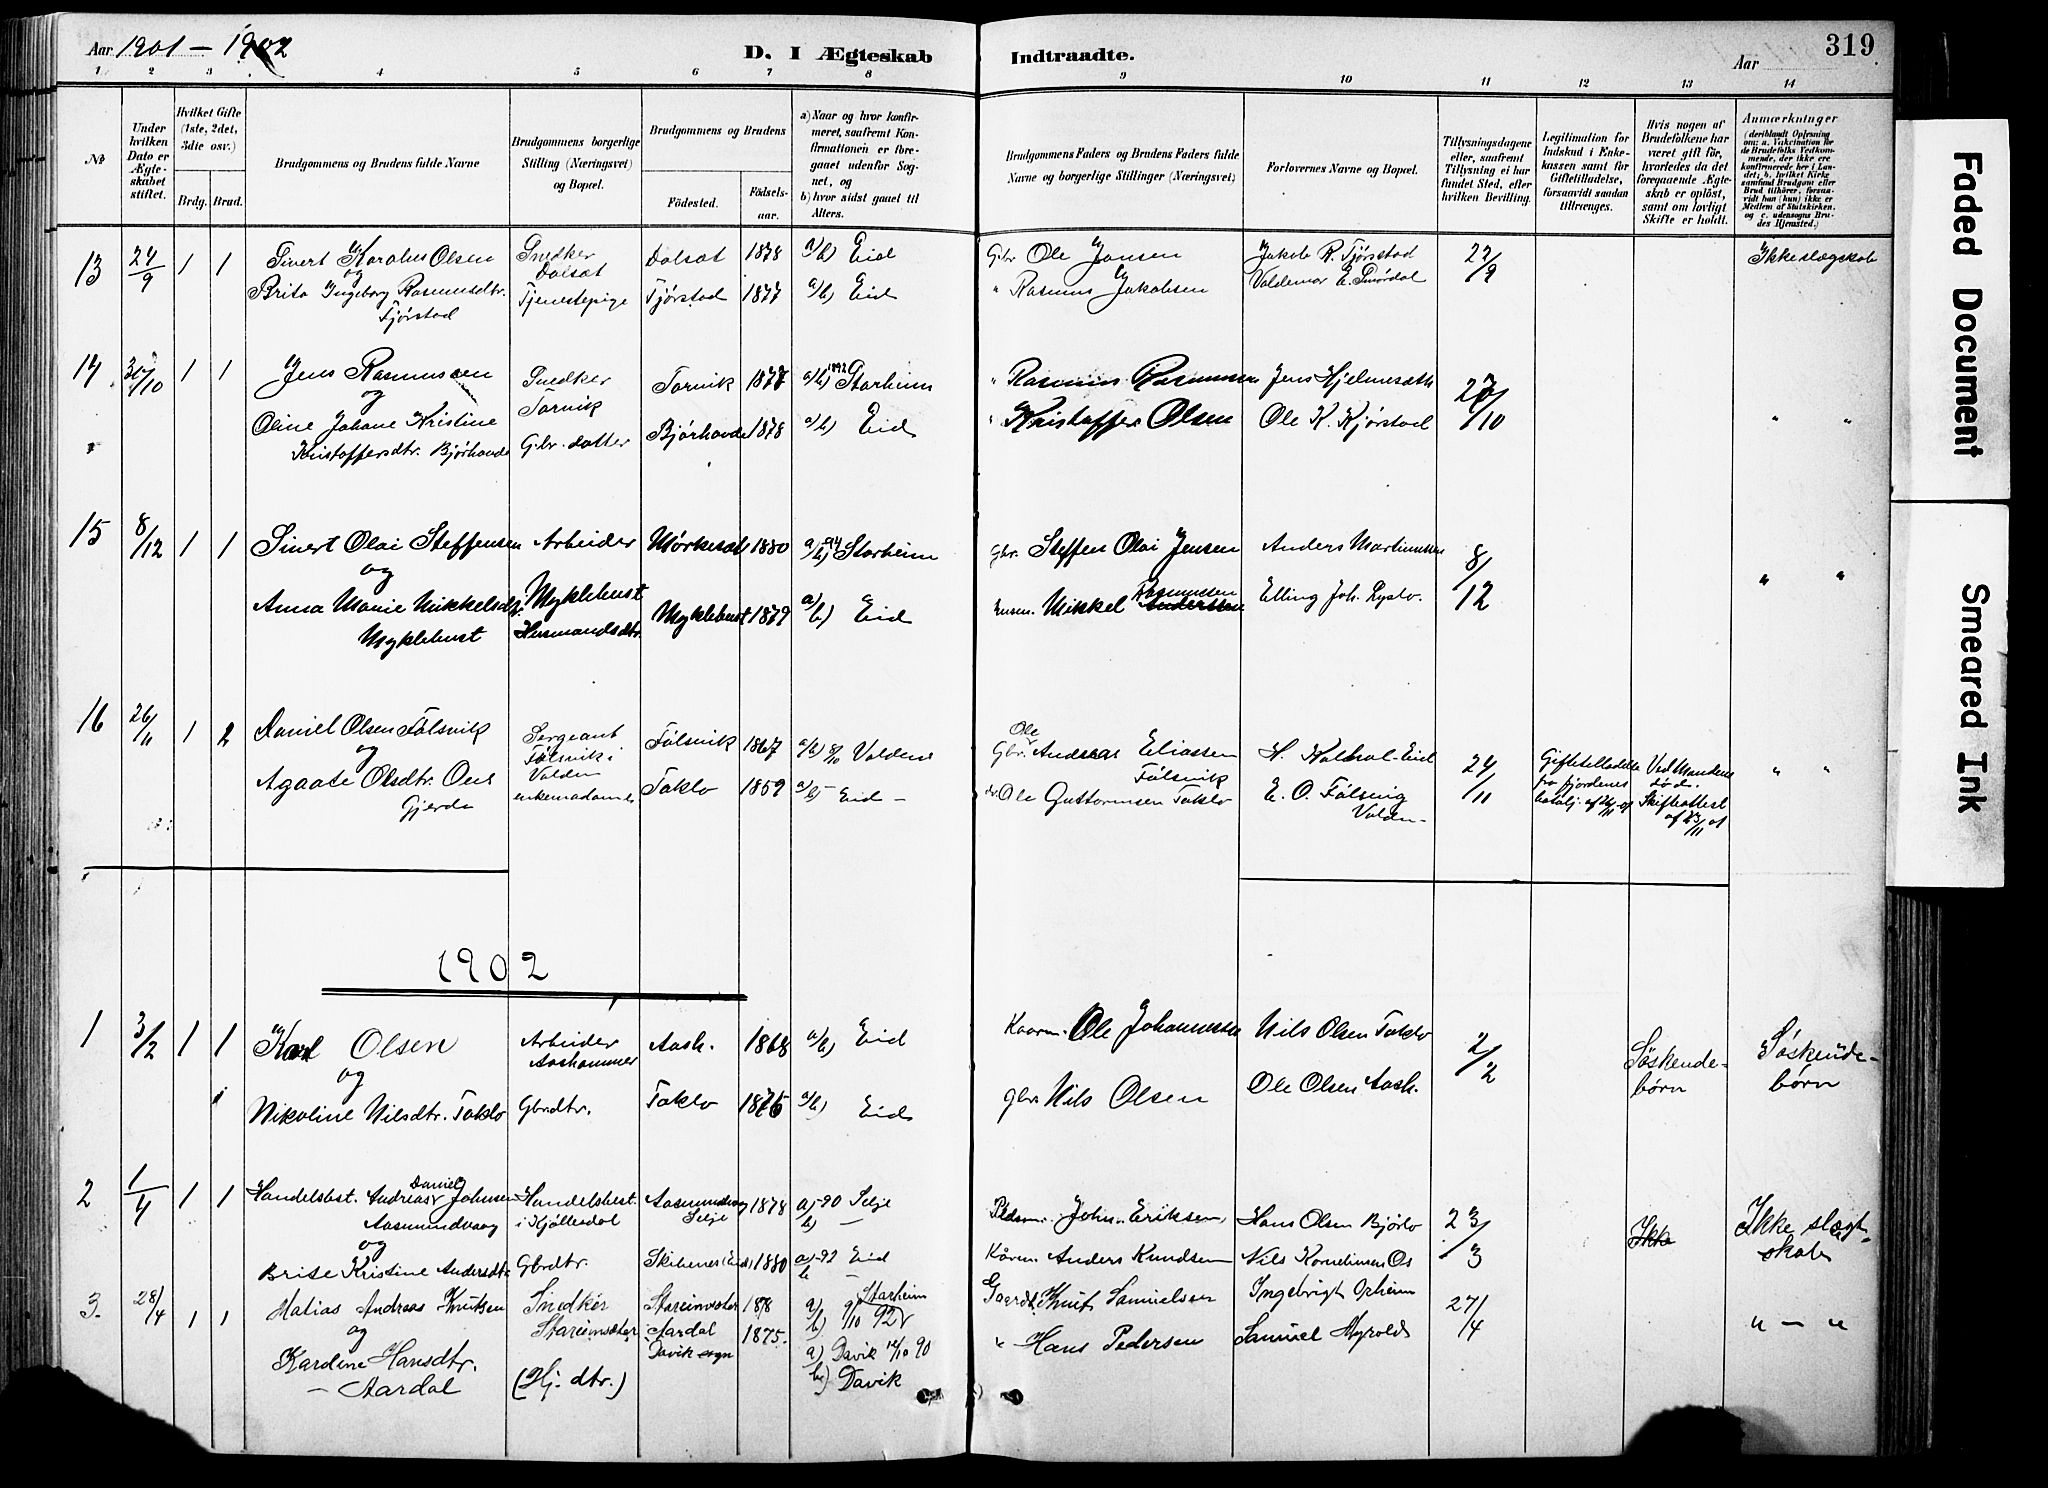 Aar 1901 – 1902
D. I Ægteskab Indtraadte.
Aar
319
1 2 3 4 5 6 7 8 9 10 11 12 13 14
No
Under hvilken Dato er Ægteskabet stiftet.
Hvilket Gifte (1ste, 2det, 3die osv.)
Brdg. Brud.
Brudgommens og Brudens fulde Navne
Brudgommens borgerlige Stilling (Næringsvei) og Bopæl.
Brudgommens og Brudens
Fødested.
Fødselsaar.
a) Naar og hvor konfirmeret, saafremt Konfirmationen er foregaaet udenfor Sognet, og
b) hvor sidst gaaet til Alters.
Brudgommens Faders og Brudens Faders fulde Navne og borgerlige Stillinger (Næringsvei)
Forlovernes Navne og Bopæl.
Tillysningsdagene eller, saafremt Tillysning ei har fundet Sted, efter hvilken Bevilling.
Legitimation for Indskud i Enkekassen samt for Giftetilladelse, forsaavidt saadan tiltrænges.
Hvis nogen af Brudefolkene har været gift før, hvorledes da det foregaaende Ægteskab er opløst, samt om lovligt Skifte er holdt.
Anmærkninger (deriblandt Oplysning om: a. Vakcination for de Brudefolks Vedkommende, der ikke ere konfirmerede her i Landet; b. hvilket Kirkesamfund Brudgom eller Brud tilhører, forsaavidt han (hun) ikke er Medlem af Statskirken. og c. udensogns Brudes Hjemsted.)
13 24/9 1 1 Sivert Karolus Olsen Snedker Dalsæt 1878 a/b) Eid Gbr Ole Jansen Jakob R. Fjørstad 22/9 Ikke slægskab
og Dalsæt
Brita Ingeborg Rasmusdtr. Tjenestepige Fjørstad 1877 a/b) Eid " Rasmus Jakobsen Valdemar E.
Fjørstad
14 30/10 1 1 Jens Rasmussen Snedker Torvik 1877 a/b) 1892 Starheim " Rasmus Rasmussen Jens Hjelmesæth 27/10 " "
og Torvik
Oline Johane Kristine Gbr. datter Bjørhovde 1878 a/b) Eid " Kristoffer Olsen Ole K. Kjørstad
Kristoffersdtr. Bjørhovde
15 8/12 1 1 Sivert Olai Steffensen Arbeider Mørkesæt 1880 a/b) 94 Starheim Gbr. Steffen Olai Jensen Anders Martinussen 8/12 " "
og
Anna Marie Mikkelsdtr. Myklebust Myklebust 1879 a/b) Eid Husm. Mikkel Rasmussen Anderssen Elling Joh. Lyslo.
Myklebust Husmandsdtr.
16 26/11 1 2 Daniel Olsen Fölsvik Sergeant Fölsvik 1867 a/b) 8/10 Valden Gbr. Ole Andreas Eliassen Fölsvik H. Kolhol-Eid 24/11
og Fölsvik i Valden
Agaate Olsdtr. Ous Gjerde enkemadame Taklo 1859 a/b – Eid – Ole Guttormsen Taklo E. O. Fölsvig Valdn–
Giftetilladelse fra fjordenes batalj. af
Ved Mandens död. Skifteattest af 23/11 01
" "
1902
1 3/2 1 1 Karl Olsen Arbeider Aash. 1868 a/b) Eid Kaarm. Ole Johannesen Nils Olsen Taklo 2/2 Söskendebörn Söskendebörn
og Aashammer
Nikoline Nilsdtr. Taklo Gbrdtr. Taklo 1876 a/b) Eid gbr. Nils Olsen Ole Olsen Aash.
2 1/4 1 1 Handelsbst. Andreas Daniel Johnsen Handelsbest. Aasmundvaag 1878 a) –90 Selje Pldsm. John Eriksen, Hans Olsen Bjørlo 23/3 Ikke Ikke slægtskab
Aasmundvaag i Kjølledal Selje b) –
og
Brite Kristine Andersdtr. Gbrdtr. Skibenes (Eid) 1880 a) –92 Eid Kårm. Anders Knudsen Nils Kornelimsen Os
b –
3. 28/4 1 1 Matias Andreas Knutsen Snedker Stareimsæter 1878 a/b) 9/10 92 Starheim Gaardb. Knut Samuelsen Ingebrigt Opheim 27/4 " – "
og Stareimsæter Aardal 1875. " Hans Pedersen Samuel Myrold
Kardine Hansdtr. (Hj. dtr.) Davik sogn a) Davik 12/10 90
– Aardal b) Davik
Faded Document
Smeared Ink